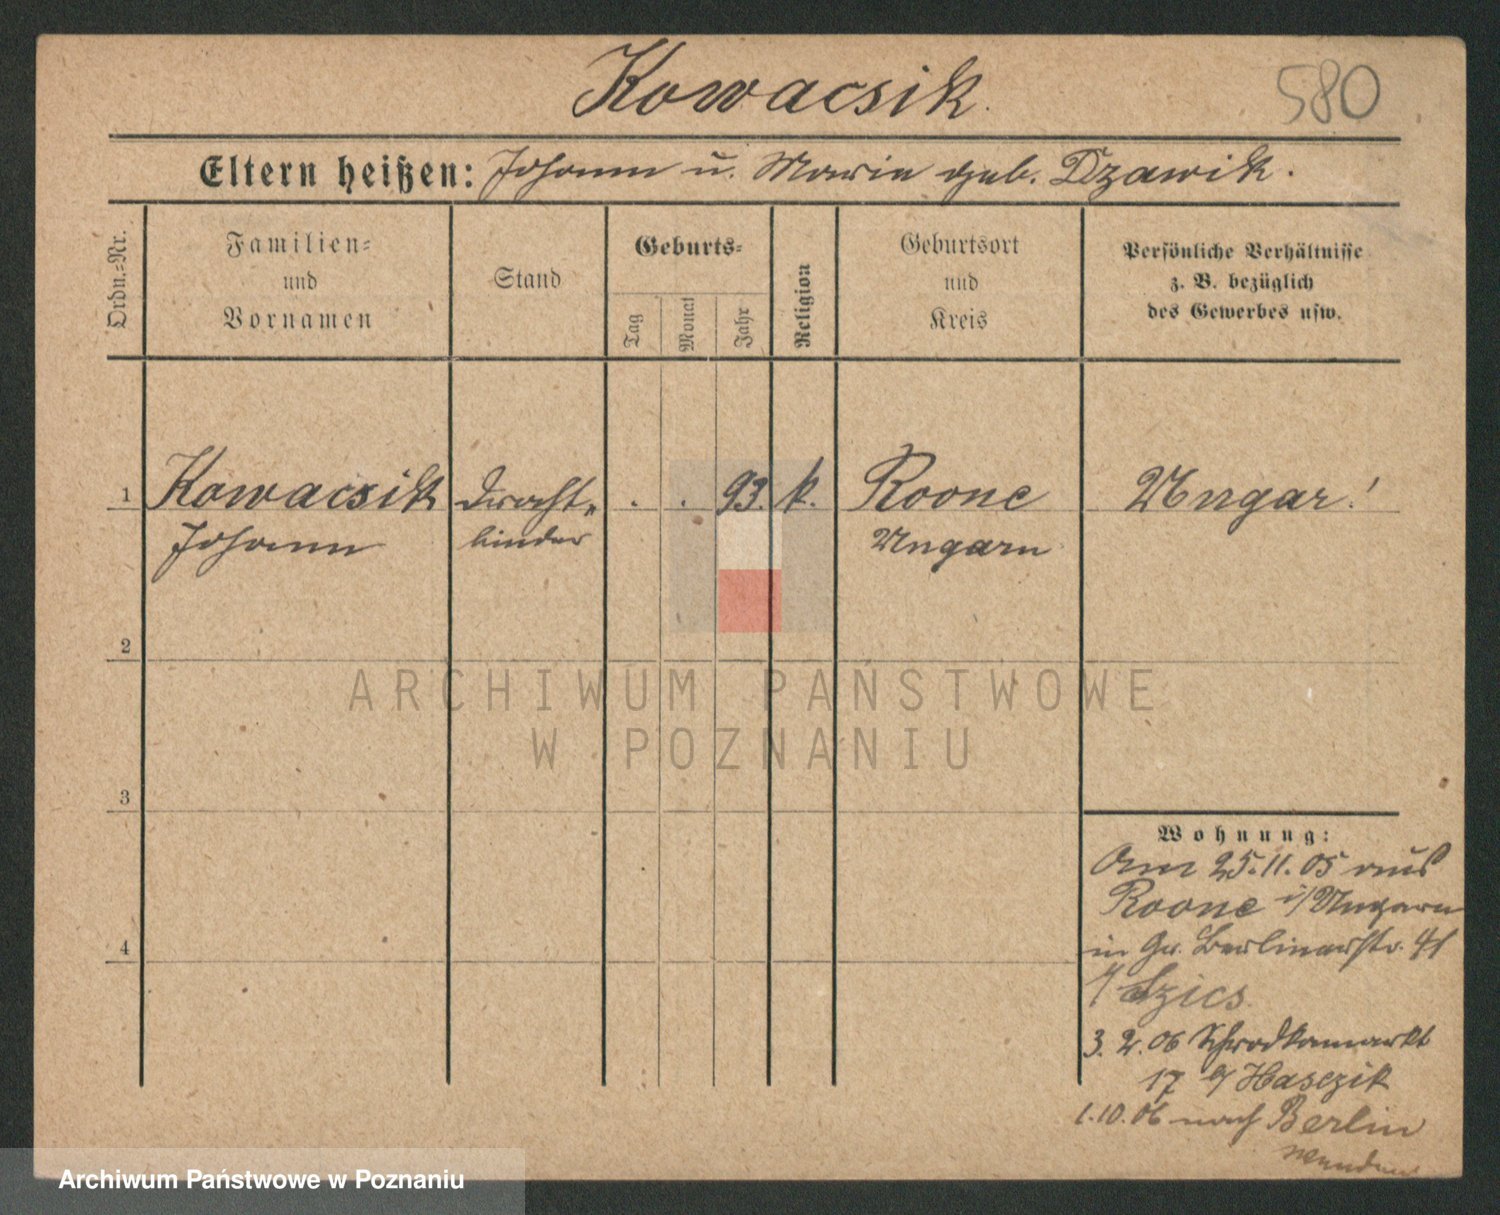 Kowacsik.
580
Eltern heißen: Johann u. Marie geb. Dzawik.
Ordn.-Nr.
Familien-
und
Vornamen
Stand
Geburts-
Tag
Monat
Jahr
Religion
Geburtsort
und
Kreis
Persönliche Verhältnisse
z. B. bezüglich
des Gewerbes usw.
1 Kowacsik Draht- . . 93. k. Roone Ungar!
Johann binder Ungarn
2
ARCHIWUM PAŃSTWOWE
W POZNANIU
3
4
Wohnung:
Am 25.11.05 aus
Roone i/Ungarn
in Gr. Berlinerstr. 41
b/ Szics
3. 2. 06 Schrodkamarkt
17 b/ Hasczik
1.10.06 nach Berlin
wenden
Archiwum Państwowe w Poznaniu